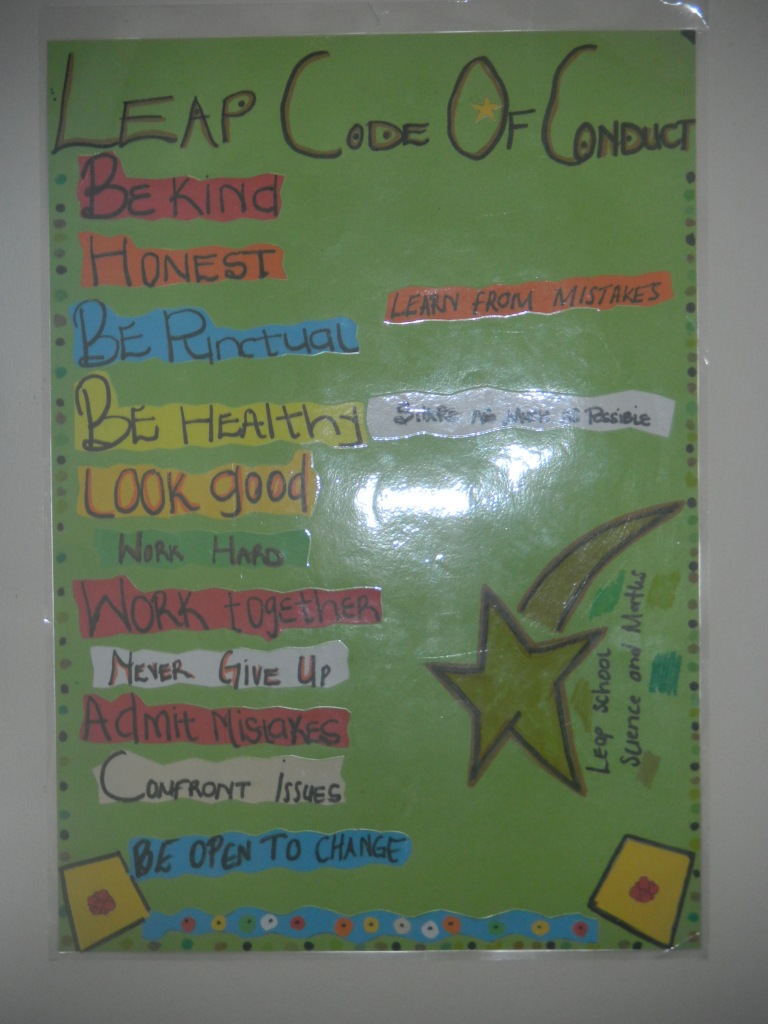 LEAP CODE OF CONDUCT
BE KIND
HONEST
LEARN FROM MISTAKES
BE Punctual
BE HEALTHY
SHARE AS MUCH AS POSSIBLE
LOOK good
WORK HARD
WORK together
NEVER GIVE UP
Admit MISTAKES
CONFRONT ISSUES
BE OPEN TO CHANGE
Leap school
Science and Maths